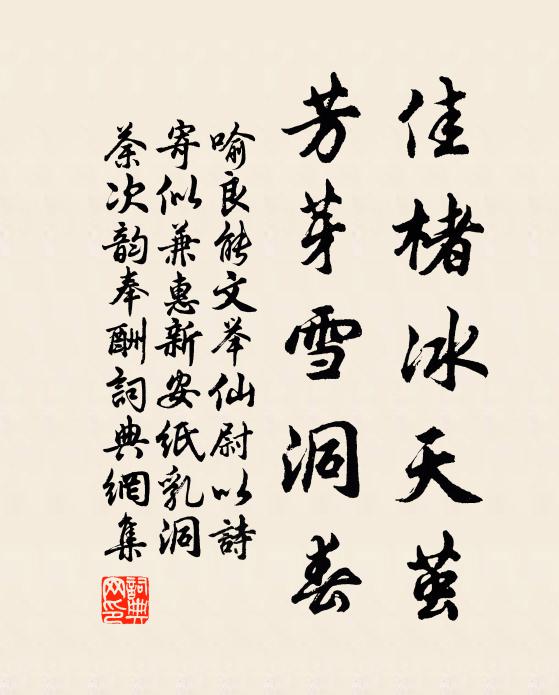 佳楮冰天茧
芳芽雪洞春
喻良能文举仙尉以詩
寄似兼惠新安纸乳洞
茶次韵奉酬詞典網集
詞典網印